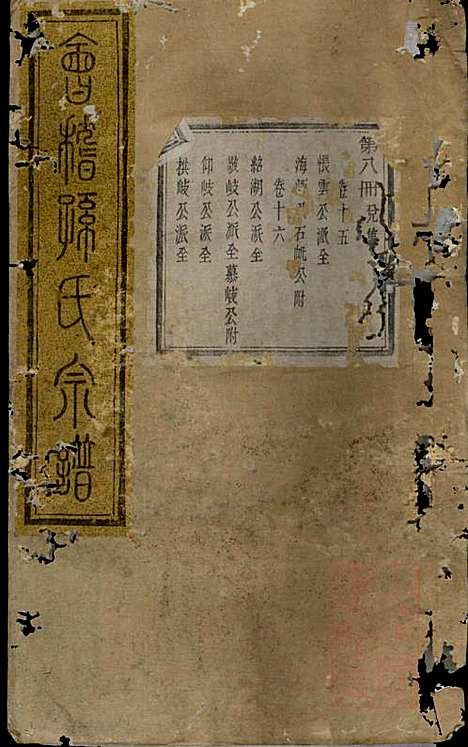 會稽孫氏宗譜
第八冊兌集
卷十五
悵雲公派全
海 石 公附
卷十六
絡湖公派全
岐公派全慕岐公附
仰岐公派全
拱岐公派全